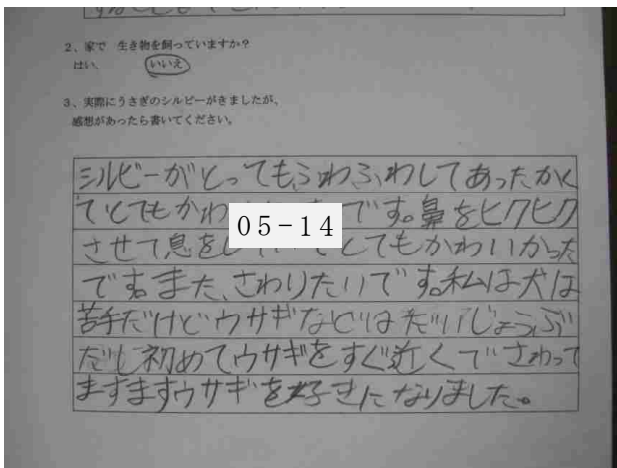 2、家で 生き物を飼っていますか？
はい、 いいえ
3、実際にうさぎのシルビーがきましたが、
感想があったら書いてください。
シルビーがとってもふわふわしてあったかく
ていてもかわ です。鼻をヒクヒク
05-14
させて息をし とてもかわいかった
です。また、さわりたいです。私は犬は
苦手だけどウサギなどはだいじょうぶ
だし初めてウサギをすぐ近くでさわって
ますますウサギを好きになりました。